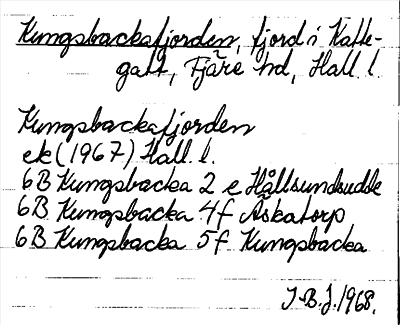 Kungsbackafjorden, fjord i Katte-
gatt, Fjäre hd, Hall. l.
Kungsbackafjorden
ek (1967) Hall. l.
6B Kungsbacka 2 e Hållsundsudde
6B Kungsbacka 4f Åskatorp
6B Kungsbacka 5f Kungsbacka
I-B.J. 1968.